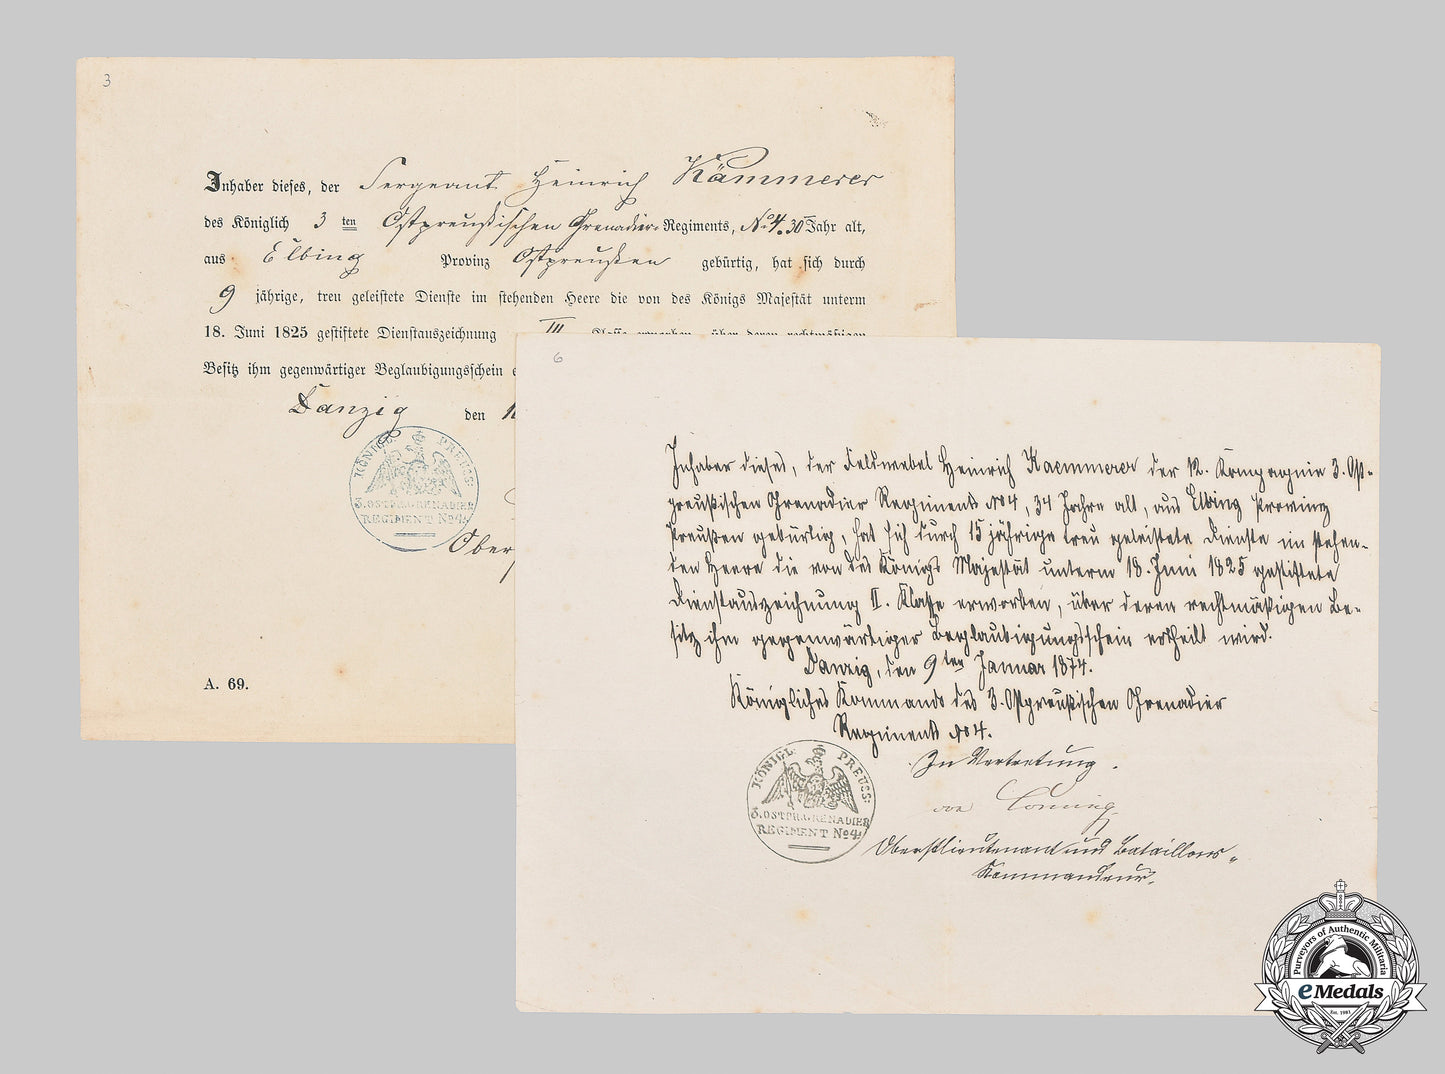 3
Inhaber dieses, der Sergeant Heinrich Kämmerer
des Königlich 3 ten Ostpreußischen Grenadier-Regiments, No 4. 30 Jahr alt,
aus Elbing Provinz Ostpreußen gebürtig, hat sich durch
9 jährige, treu geleistete Dienste im stehenden Heere die von des Königs Majestät unterm
18. Juni 1825 gestiftete Dienstauszeichnung III Klasse erworben, über deren rechtmäßigen
Besitz ihm gegenwärtiger Beglaubigungsschein
Danzig den
KÖNIGL. PREUSS:
3. OSTPR. GRENADIER
REGIMENT No 4.
A. 69.
6
Inhaber dieses, der Feldwebel Heinrich Kaemmerer der 12. Kompagnie 3. Ost-
preußischen Grenadier Regiments No 4, 34 Jahre alt, aus Elbing Provinz
Preußen gebürtig, hat sich durch 15 jährige treu geleistete Dienste im stehen-
den Heere die von des Königs Majestät unterm 18. Juni 1825 gestiftete
Dienstauszeichnung II. Klasse erworben, über deren rechtmäßigen Be-
sitz ihm gegenwärtiger Beglaubigungsschein ertheilt wird.
Danzig, den 9ten Januar 1874.
Königliches Kommando des 3. Ostpreußischen Grenadier
Regiments No 4.
In Vertretung.
von
Oberstlieutenant und Bataillons-
Kommandeur.
KÖNIGL. PREUSS:
3. OSTPR. GRENADIER
REGIMENT No 4.
Purveyors of Authentic Militaria
eMedals
Est. 1981